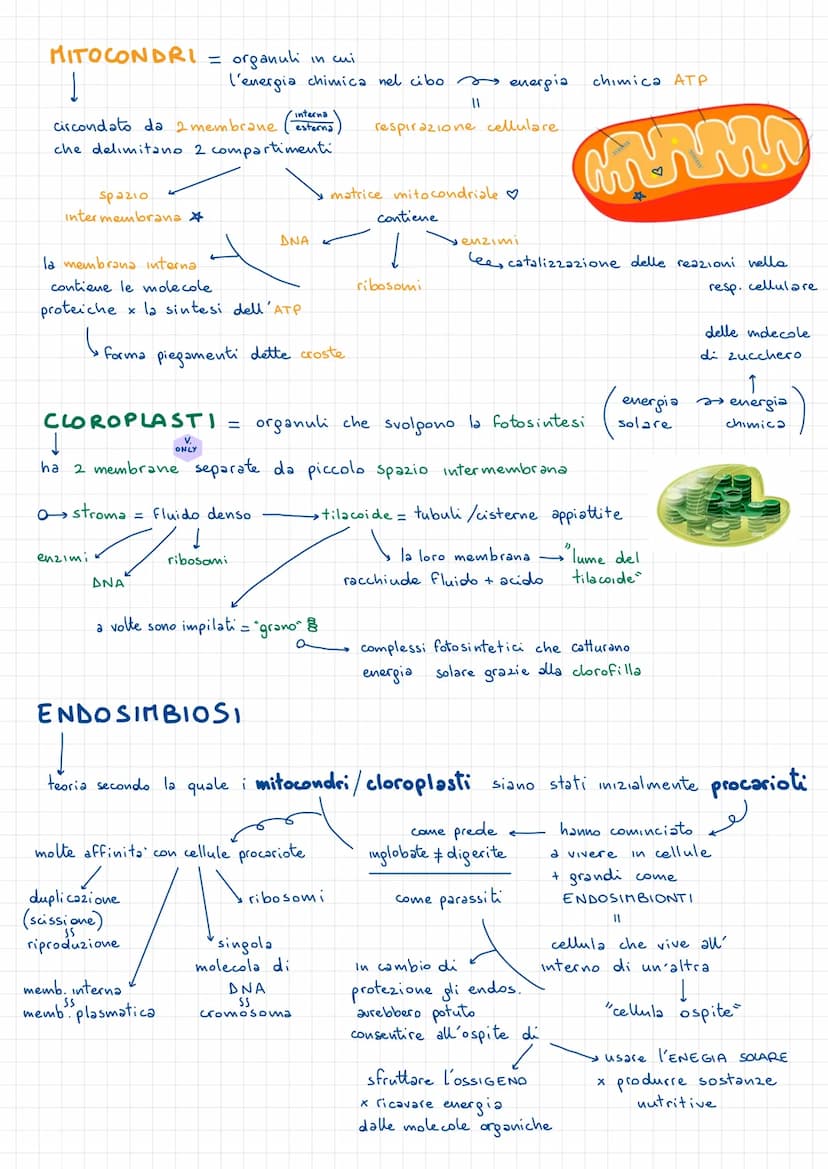 MITOCONDRI = organuli in cui
l'energia chimica nel cibo → energia chimica ATP
=
circondato da 2 membrane (interna esterna)
respirazione cellulare
che delimitano 2 compartimenti
spazio
intermembrana ☆
matrice mitocondriale ♡
contiene
DNA
ribosomi
enzimi
catalizzazione delle reazioni nella
resp. cellulare
la membrana interna
contiene le molecole
proteiche x la sintesi dell'ATP
forma piegamenti dette croste
CLOROPLASTI = organuli che svolgono la fotosintesi
(energia solare → energia chimica)
delle molecole
di zucchero
V.
ONLY
ha 2 membrane separate da piccolo spazio intermembrana
→ stroma = fluido denso → tilacoide = tubuli/cisterne appiattite
enzimi
DNA
ribosomi
la loro membrana → "lume del
racchiude fluido + acido tilacoide"
a volte sono impilati = "grano"
complessi fotosintetici che catturano
energia solare grazie alla clorofilla
ENDOSIMBIOSI
teoria secondo la quale i mitocondri/cloroplasti siano stati inizialmente procarioti
molte affinita' con cellule procariote
duplicazione
(scissione)
riproduzione
memb. interna
memb. plasmatica
singola
molecola di
DNA
cromosoma
ribosomi
hanno cominciato
a vivere in cellule
+ grandi come
ENDOSIMBIONTI
=
cellula che vive all'
interno di un'altra
"cellula ospite"
come prede
inglobate ≠ digerite
come parassiti
in cambio di
protezione gli endos.
avrebbero potuto
consentire all'ospite di
sfruttare l'OSSIGENO
x ricavare energia
dalle molecole organiche
usare l'ENEGIA SOLARE
x produrre sostanze
nutritive